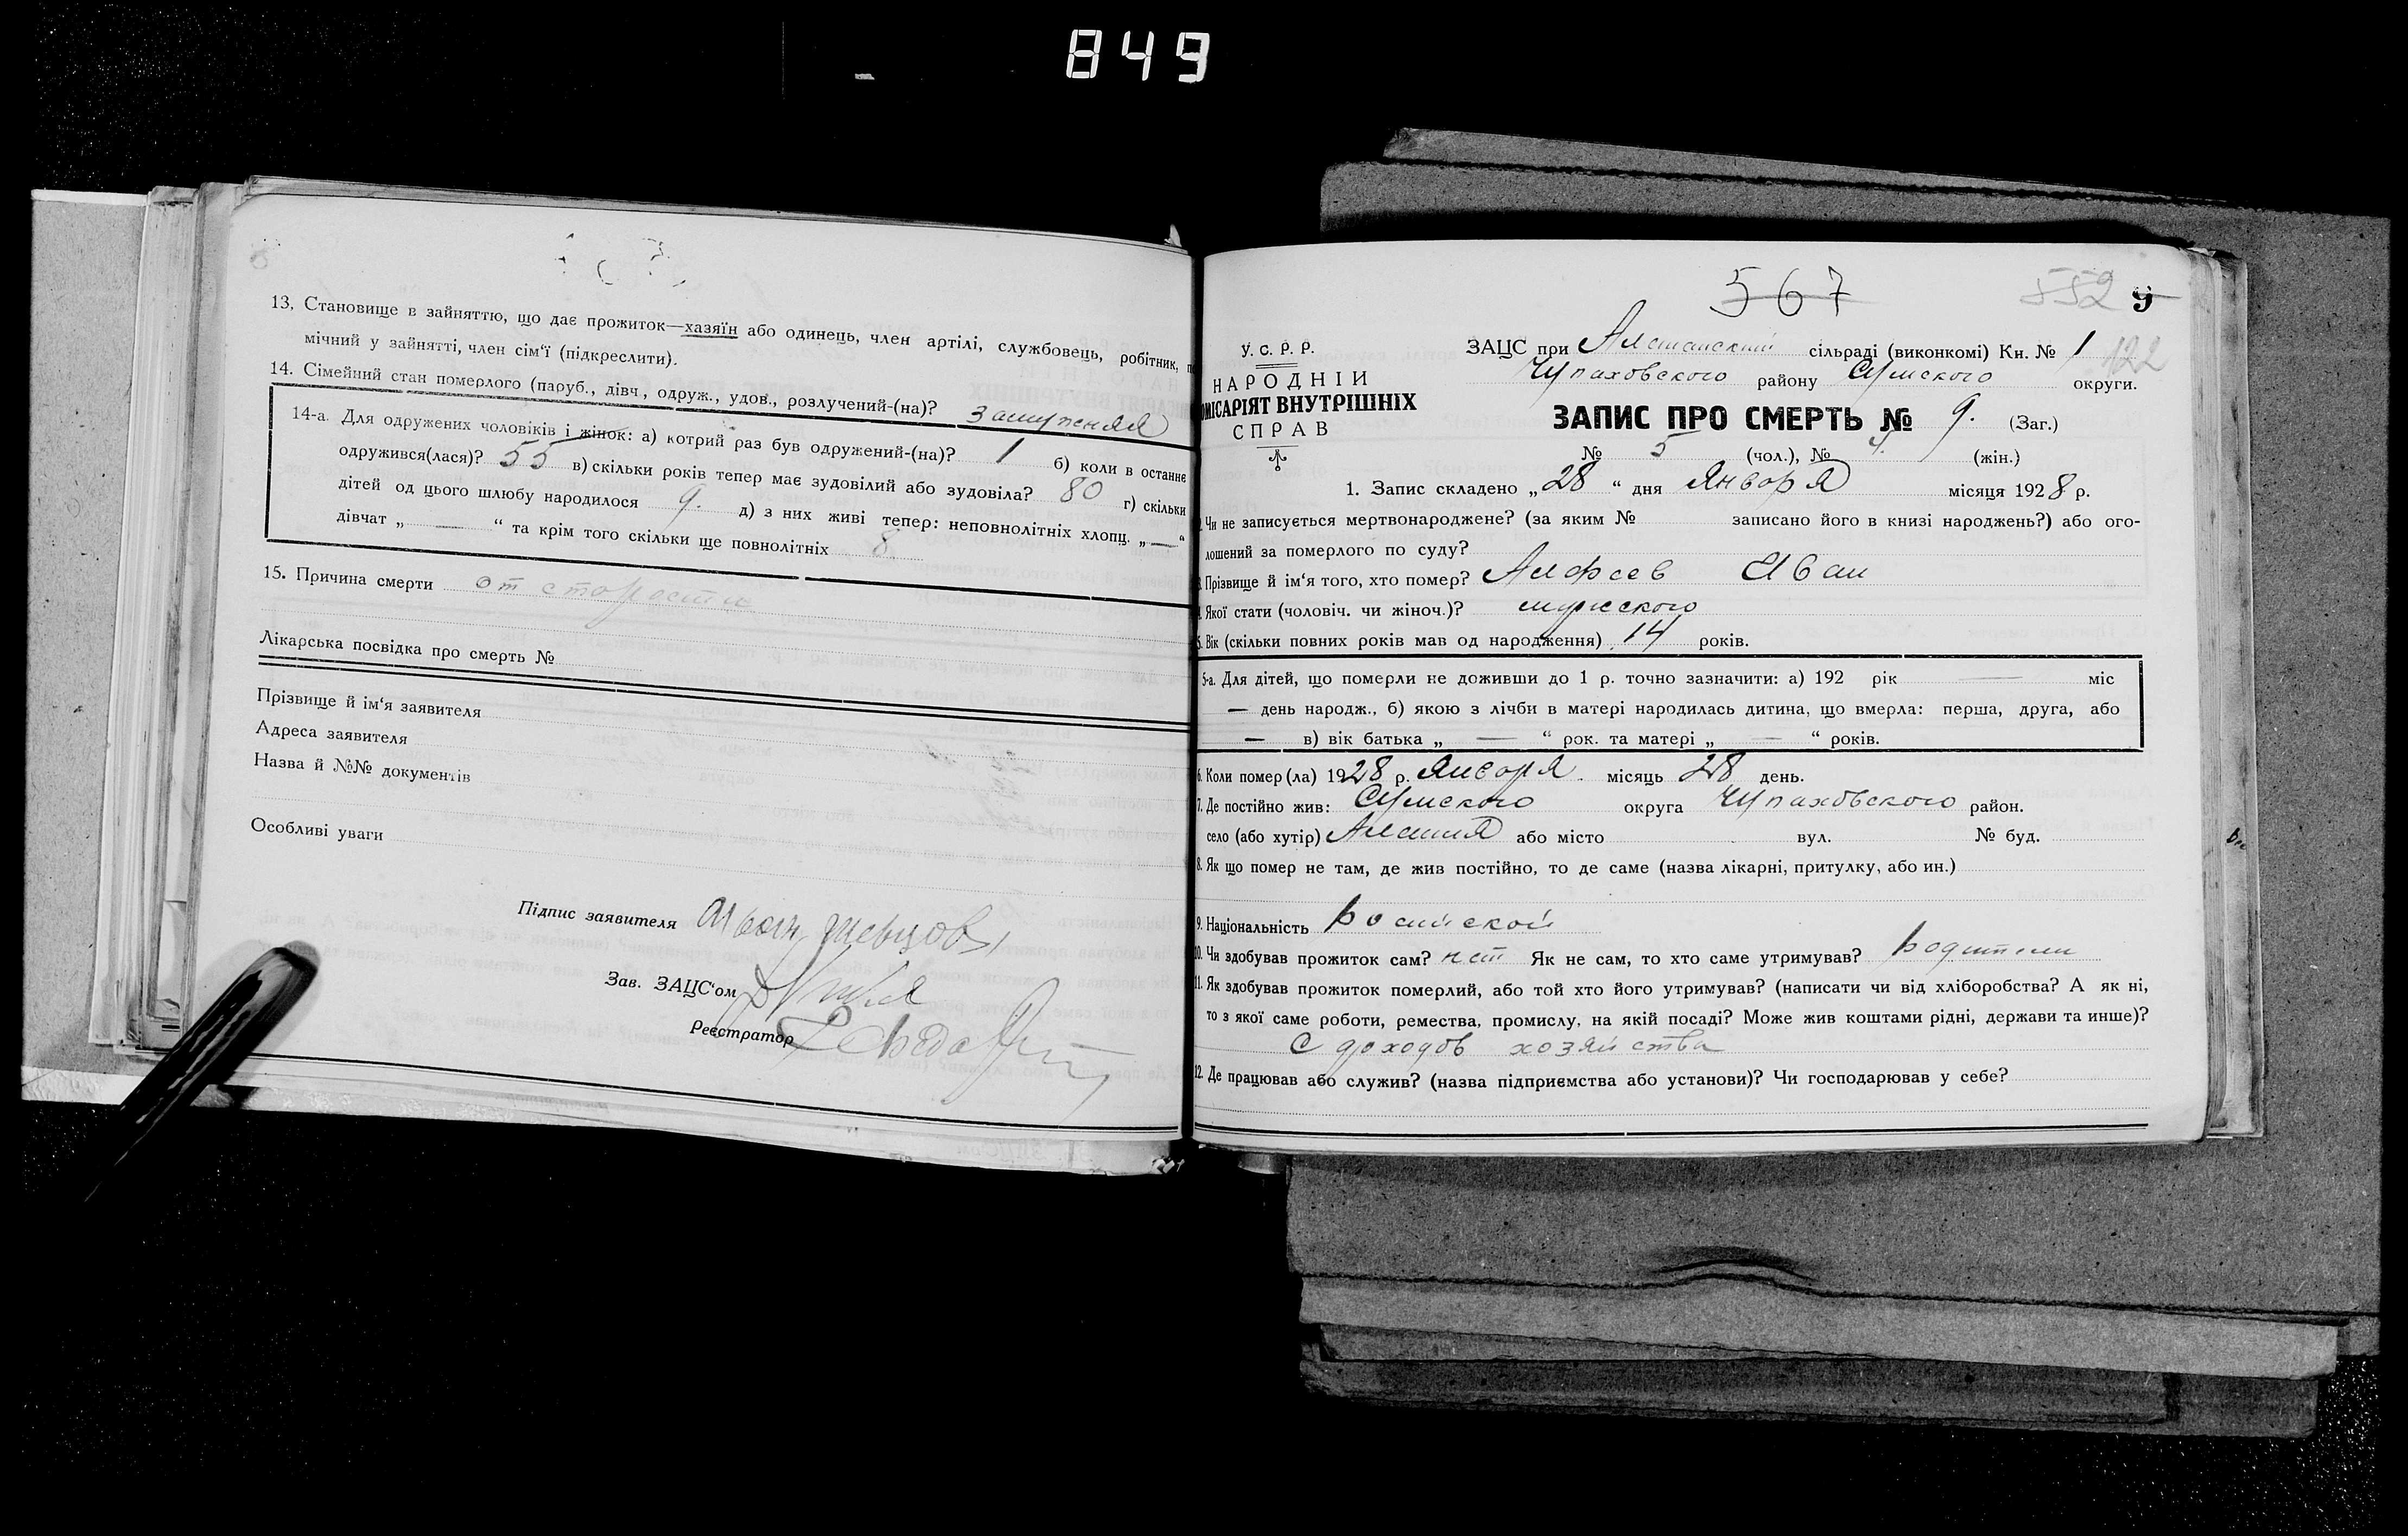 849
13. Становище в зайняттю, що дає прожиток—хазяїн або одинець, член артілі, службовець, робітник,
мічний у зайнятті, член сім'ї (підкреслити).
14. Сімейний стан померлого (паруб., дівч., одруж., удов., розлучений-(на)? замужняя
14-а. Для одружених чоловіків і жінок: а) котрий раз був одружений-(на)? 1 б) коли в останнє
одружився(лася)? 55 в) скільки років тепер має зудовілий або зудовіла? 80 г) скільки
дітей од цього шлюбу народилося 9. д) з них живі тепер: неповнолітніх хлопц. „ — “
дівчат „ — “ та крім того скільки ще повнолітніх 8
15. Причина смерти от старости
Лікарська посвідка про смерть №
Прізвище й ім'я заявителя
Адреса заявителя
Назва й №№ документів
Особливі уваги
Підпис заявителя
Зав. ЗАЦС'ом
Реєстратор
567 552 9
У. С. Р. Р.
НАРОДНІЙ
ОМІСАРІЯТ ВНУТРІШНІХ
СПРАВ
ЗАЦС при сільраді (виконкомі) Кн. № 1 122
Чупаховского району Сумского округи.
ЗАПИС ПРО СМЕРТЬ № 9. (Заг.)
№ 5 (чол.), № 4. (жін.)
1. Запис складено „28“ дня Января місяця 1928 р.
Чи не записується мертвонароджене? (за яким № записано його в книзі народжень?) або ого-
лошений за померлого по суду?
Прізвище й ім'я того, хто помер? Алфеев Иван
Якої стати (чоловіч. чи жіноч.)? мужского
5. Вік (скільки повних років мав од народження) 14 років.
5-а. Для дітей, що померли не доживши до 1 р. точно зазначити: а) 192 рік — міс
— день народж., б) якою з лічби в матері народилась дитина, що вмерла: перша, друга, або
— в) вік батька „ — “ рок. та матері „ — “ років.
6. Коли помер(ла) 1928 р. Января місяць 28 день.
7. Де постійно жив: Сумского округа Чупаховского район.
село (або хутір) або місто вул. № буд.
8. Як що помер не там, де жив постійно, то де саме (назва лікарні, притулку, або ин.)
9. Національність
10. Чи здобував прожиток сам? нет Як не сам, то хто саме утримував? Родители
11. Як здобував прожиток померлий, або той хто його утримував? (написати чи від хліборобства? А як ні,
то з якої саме роботи, ремества, промислу, на якій посаді? Може жив коштами рідні, держави та инше)?
С доходов хозяйства
12. Де працював або служив? (назва підприємства або установи)? Чи господарював у себе?